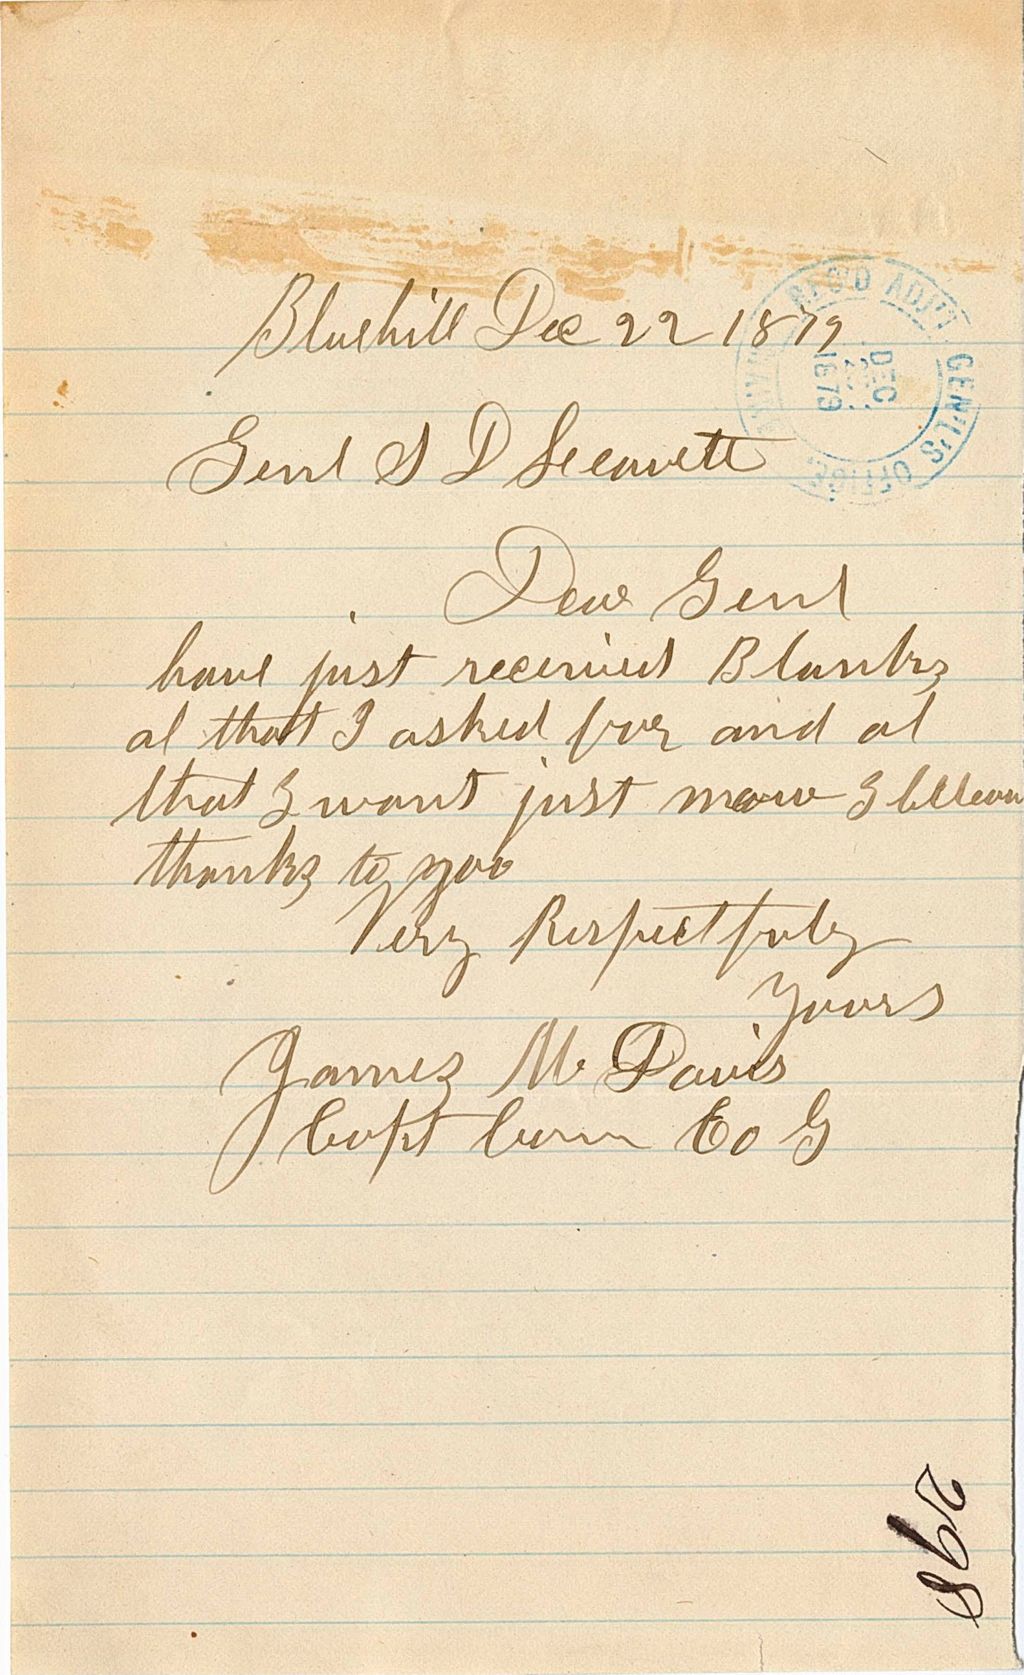 Bluehill Dec 22 1879
REC'D ADJ'T. GEN'L'S OFFICE,
DEC
1879
Genl S D Leavett
Dear Genl
have just received Blanks
al that I asked for and al
that I want just now I believe
thanks to you
Very Respectfuly
Yours
James M Davis
Capt Com Co G
298